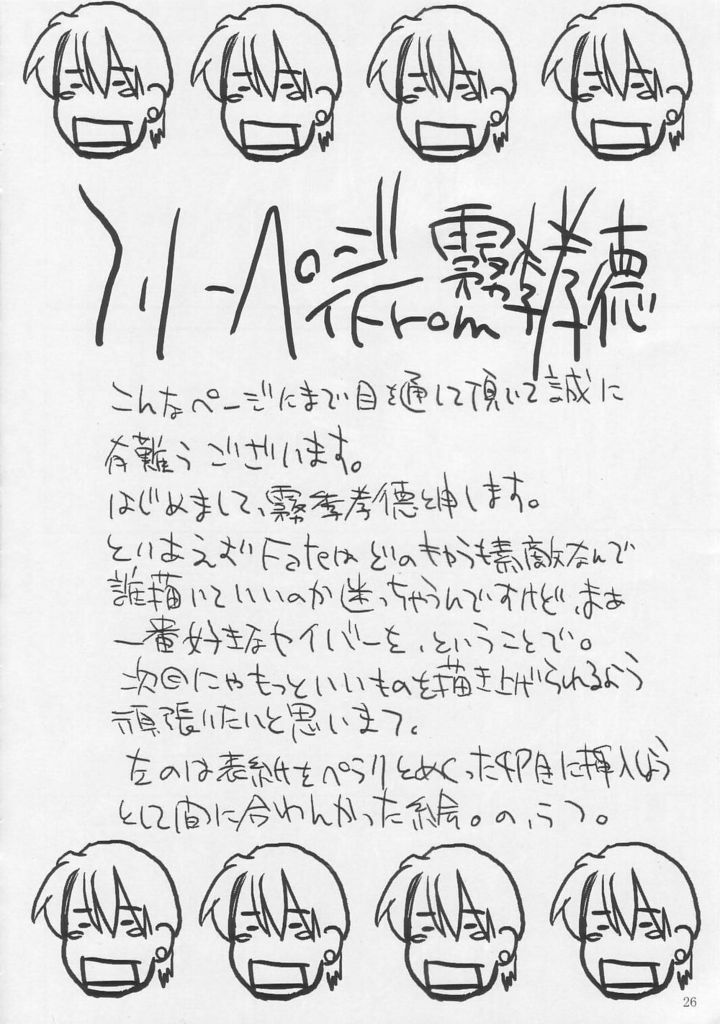 フリーページ From 霧季孝徳
こんなページにまで目を通して頂いて誠に
有難うございます。
はじめまして、霧季孝徳と申します。
とりあえずFateはどのキャラも素敵なんで
誰描いていいのか迷っちゃうんですけど、まぁ
一番好きなセイバーを、ということで。
次回にゃもっといいものを描き上げられるよう
頑張りたいと思います。
左のは表紙をペラリとめくった中身に挿入しよう
として間に合わんかった絵。の、うつ。
26